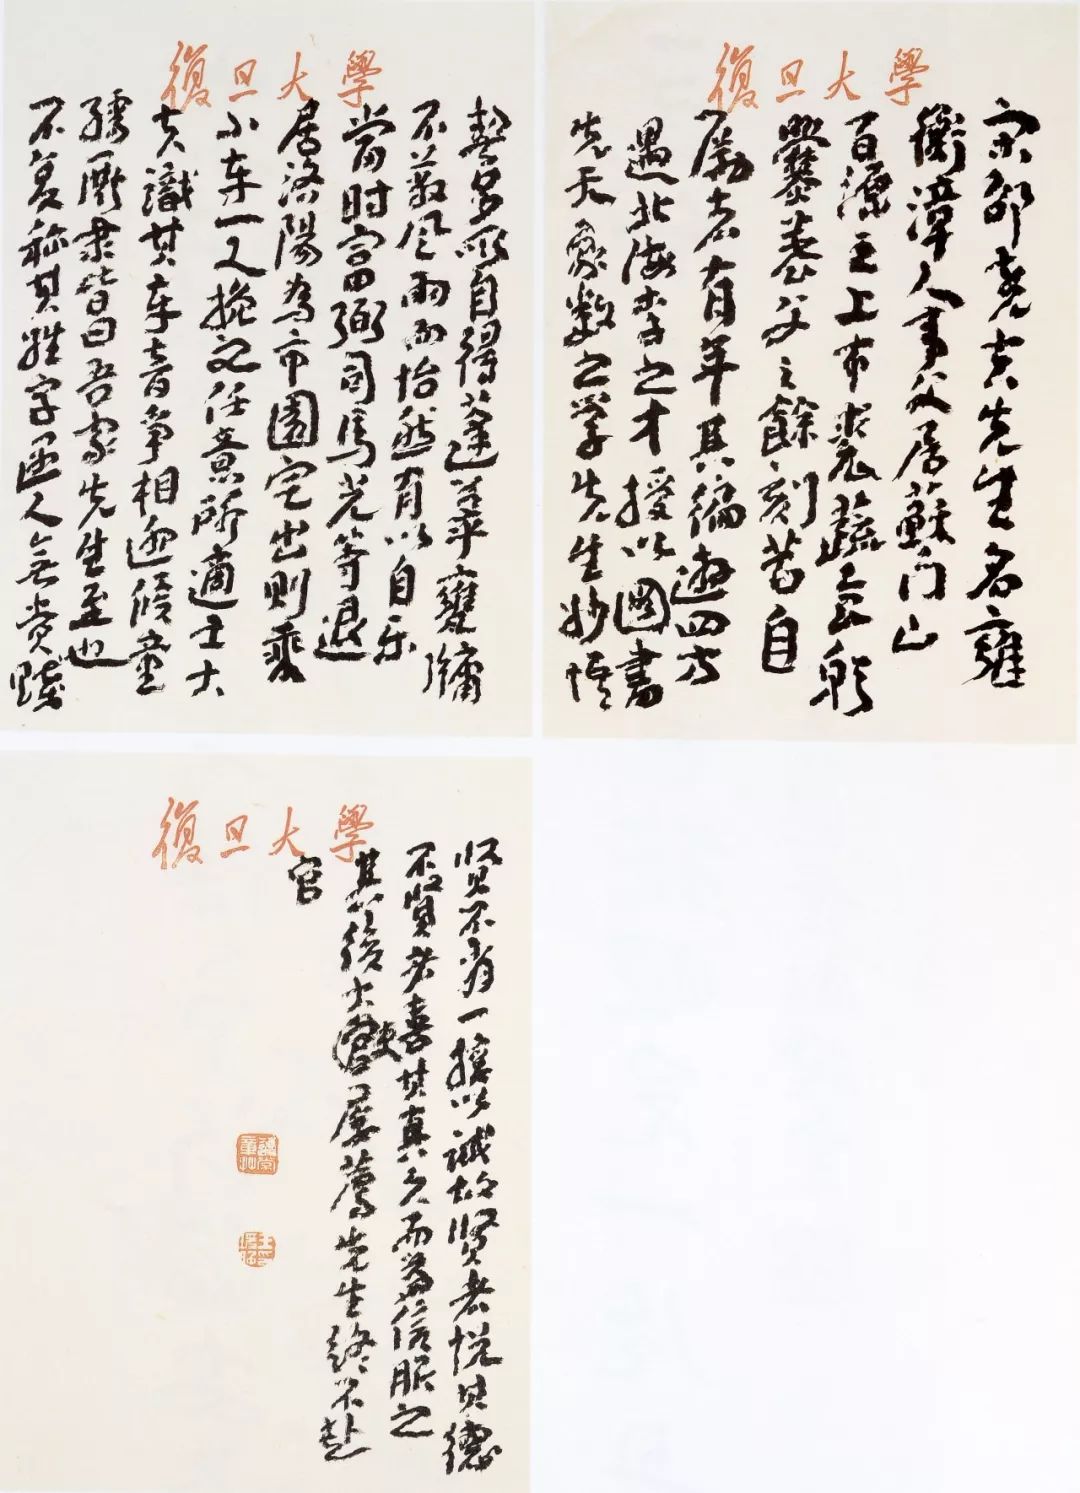 復旦大學
宋邵尭夫先生名雍
衡漳人事父居蘇门山
百源之上布裘蔬食躬
爨养父之餘刻苦自
勵者有年其徧遊四方
遇北海李之才授以圖書
先天象数之学先生妙悟
復旦大學
契多所自得蓬蓽甕牖
不蔽风雨而怡然有以自乐
當时富弼司馬光等退
居洛陽為市園宅出則乘
小车一人挽之任意所適士大
夫識其车音爭相迎候童
孺厮隶皆曰吾家先生至也
不复称其姓字遇人无贵賤
復旦大學
贤不肖一接以誠故贤者悦其德
不贤者喜其真久而益信服之
其後大屡薦先生終不赴
官